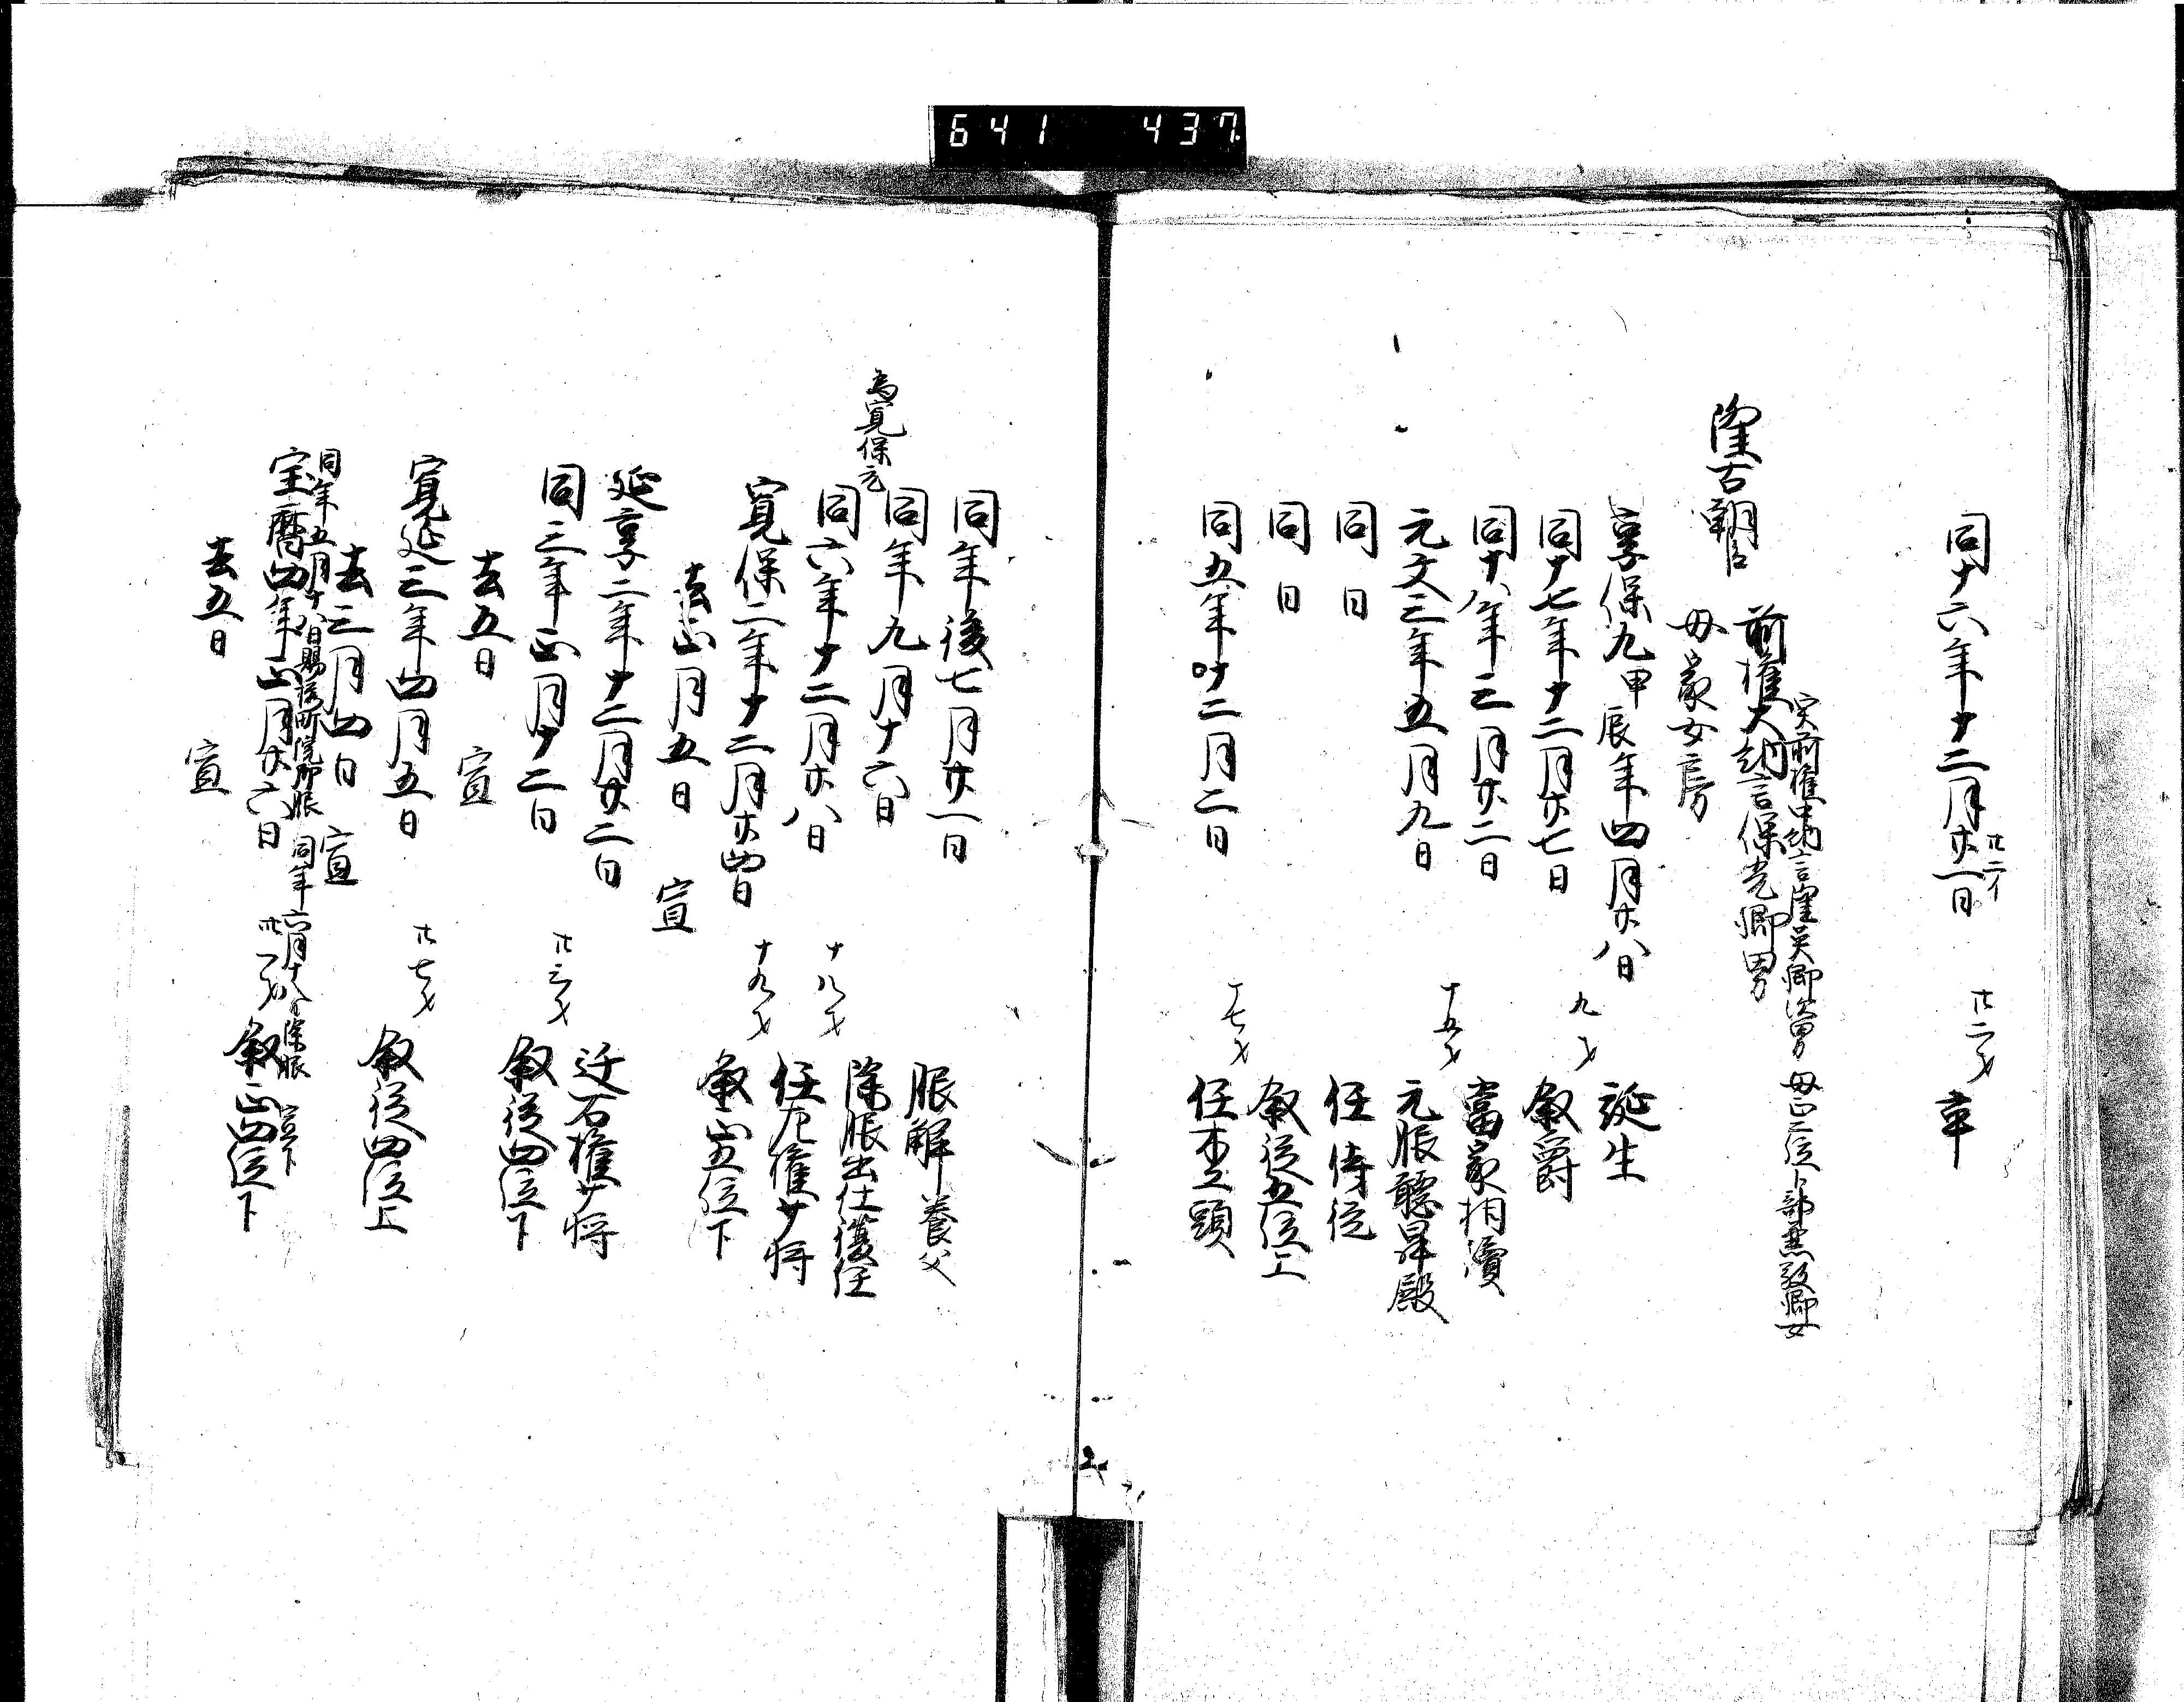 641 437
同十六年十二月廿一日 廿二才 卒
廿二才
隆古朝臣
実前権中納言隆英卿次男 母正二位卜部兼敬卿女
前権大納言保光卿男
母家女房
享保九甲辰年四月廿八日 誕生
同十七年十二月廿七日 九才 叙爵
同十八年三月廿二日 當家相續
元文三年五月九日 十五才 元服聽昇殿
同日 任侍従
同日 叙従五位上
同五年 二月二日 十七才 任 頭
同年後七月廿一日 服解養父
同年九月十六日 除服出仕復任
為寛保元
同六年十二月廿八日 十八才 任左権少将
寛保二年十二月廿四日 十九才 叙正五位下
去正月五日 宣
延享二年十二月廿二日 迁右権少将
同三年正月十二日 廿三才 叙従四位下
去五日 宣
寛延三年四月五日 廿七才 叙従四位上
去三月四日 宣
同年五月十八日賜 服 同年六月十八日除服 宣下
宝暦四年正月廿六日 卅一才 叙正四位下
去五日 宣